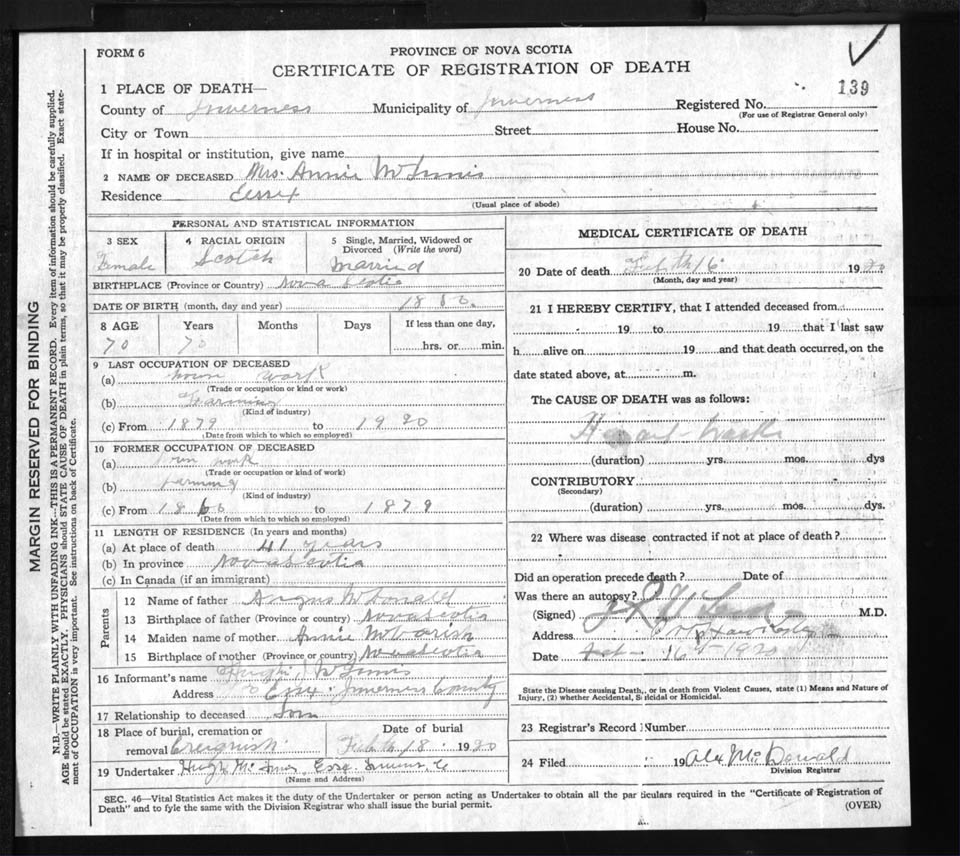 FORM 6
PROVINCE OF NOVA SCOTIA
CERTIFICATE OF REGISTRATION OF DEATH
1 PLACE OF DEATH—
139
County of Inverness Municipality of Inverness Registered No.
(For use of Registrar General only)
City or Town Street House No.
If in hospital or institution, give name
2 NAME OF DECEASED Mrs. Annie McInnis
Residence Essex
(Usual place of abode)
PERSONAL AND STATISTICAL INFORMATION
3 SEX 4 RACIAL ORIGIN 5 Single, Married, Widowed or Divorced (Write the word)
Female Scotch Married
BIRTHPLACE (Province or Country) Nova Scotia
DATE OF BIRTH (month, day and year)
8 AGE Years Months Days If less than one day,
70 70 hrs. or min.
9 LAST OCCUPATION OF DECEASED
(a) work
(Trade or occupation or kind or work)
(b) Farming
(Kind of industry)
(c) From 1879 to 1920
(Date from which to which so employed)
10 FORMER OCCUPATION OF DECEASED
(a) work
(Trade or occupation or kind of work)
(b) Farming
(Kind of industry)
(c) From to 1879
(Date from which to which so employed)
11 LENGTH OF RESIDENCE (In years and months)
(a) At place of death 41 years
(b) In province Nova Scotia
(c) In Canada (if an immigrant)
Parents
12 Name of father Angus McDonald
13 Birthplace of father (Province or country) Nova Scotia
14 Maiden name of mother Annie
15 Birthplace of mother (Province or country) Nova Scotia
16 Informant's name Hugh McInnis
Address Inverness County
17 Relationship to deceased Son
18 Place of burial, cremation or removal Creignish
Date of burial
Feb 18 1920
19 Undertaker Hugh McInnis
(Name and Address)
MEDICAL CERTIFICATE OF DEATH
20 Date of death 16 1920
(Month, day and year)
21 I HEREBY CERTIFY, that I attended deceased from
19 to 19 that I last saw
h alive on 19 and that death occurred, on the
date stated above, at m.
The CAUSE OF DEATH was as follows:
(duration) yrs. mos. dys
CONTRIBUTORY
(Secondary)
(duration) yrs. mos. dys.
22 Where was disease contracted if not at place of death?
Did an operation precede death? Date of
Was there an autopsy?
(Signed) M.D.
Address
Date Feb 16 1920
State the Disease causing Death, or in death from Violent Causes, state (1) Means and Nature of
Injury, (2) whether Accidental, Suicidal or Homicidal.
23 Registrar's Record Number
24 Filed 19 Alex McDonald
Division Registrar
SEC. 46—Vital Statistics Act makes it the duty of the Undertaker or person acting as Undertaker to obtain all the particulars required in the "Certificate of Registration of
Death" and to fyle the same with the Division Registrar who shall issue the burial permit.
(OVER)
MARGIN RESERVED FOR BINDING
N.B.—WRITE PLAINLY WITH UNFADING INK—THIS IS A PERMANENT RECORD. Every item of information should be carefully supplied.
AGE should be stated EXACTLY. PHYSICIANS should STATE CAUSE OF DEATH in plain terms, so that it may be properly classified. Exact statement of OCCUPATION is very important. See instructions on back of Certificate.